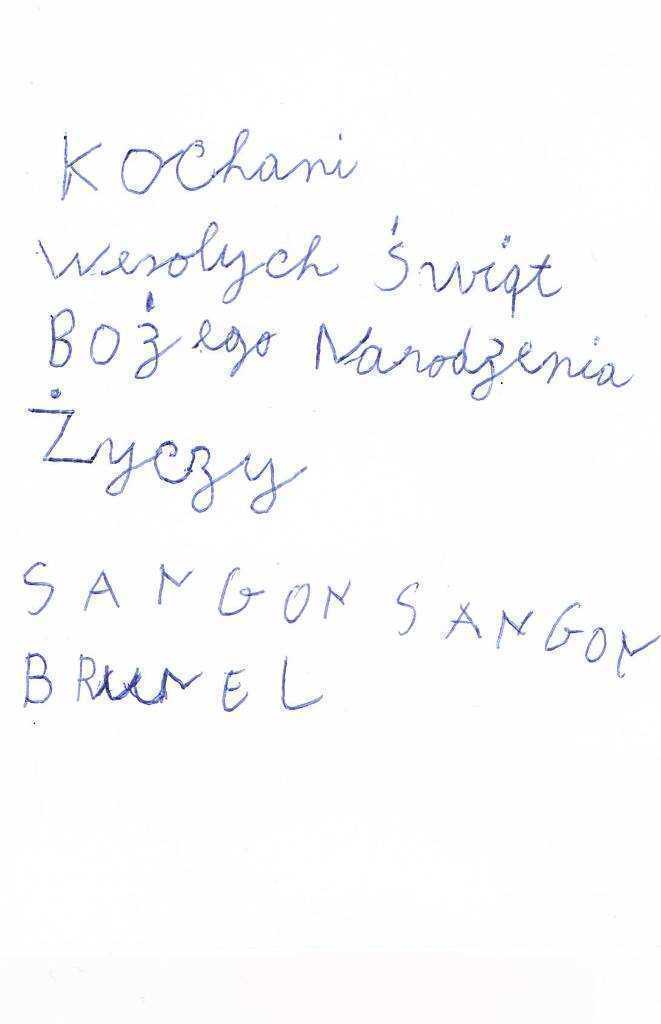 KOChani
Wesolych Świąt
BOŻego Narodzenia
Życzy
SANGON SANGON
BRUNEL